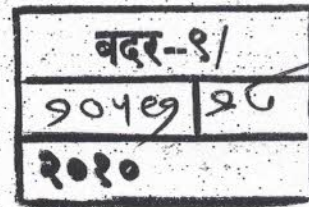 बदर--९/
१०५७१ | १८
२०१०